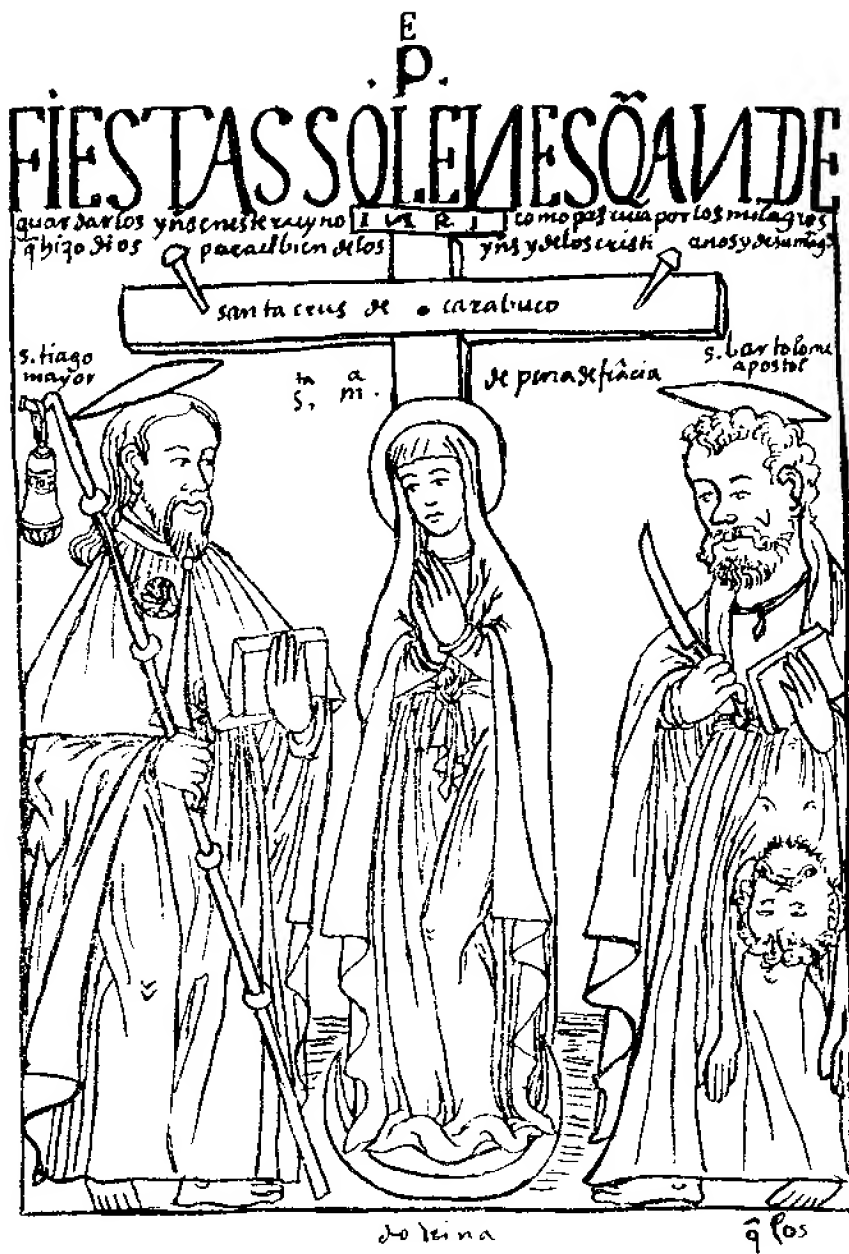 E
.P.
FIESTAS SOLENES Q̃ AN DE
guardar los yn̄s en este rreyno INRI como pascua por los milagros
q̄ hizo dios para el bien de los yn̄s y de los cristi anos y de su mag̃d
santa crus de carabuco
s. tiago
mayor
s. bartolome
apostol
ta a
S. m. de pena de frācia
dotrina
q̄ los